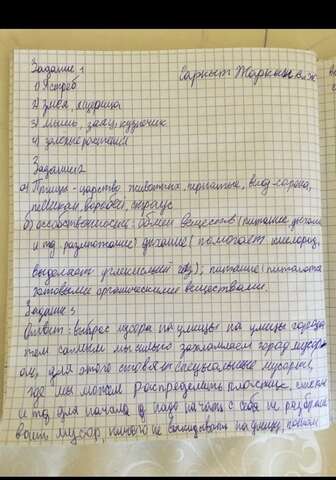 Задание 1
Саркыт Жаркынай
1) Ястреб
2) Змея, ящерица
3) мышь, заяц, кузнечик
4) зеленые растения
Задание 2
а) Птицы - царство животных, пернатые, вид - сорока,
пеликан, воробей, страус
б) особенности: обмен веществ (питание, дыхание
и тд. размножение) дыхание (помогает кислород,
выделяет углекислый газ); питание (питаются
готовыми органическими веществами.
Задание 3
Ответ: выброс мусора на улицы на улицы города
тем самым мы сильно захламляем город мусор
ом, для этого ставят специальные мусорки,
где мы можем распределить пластик, стекло
и тд для начала надо начать с себя не разбрасы
вать мусор, ничего не выкидывать на улицу,